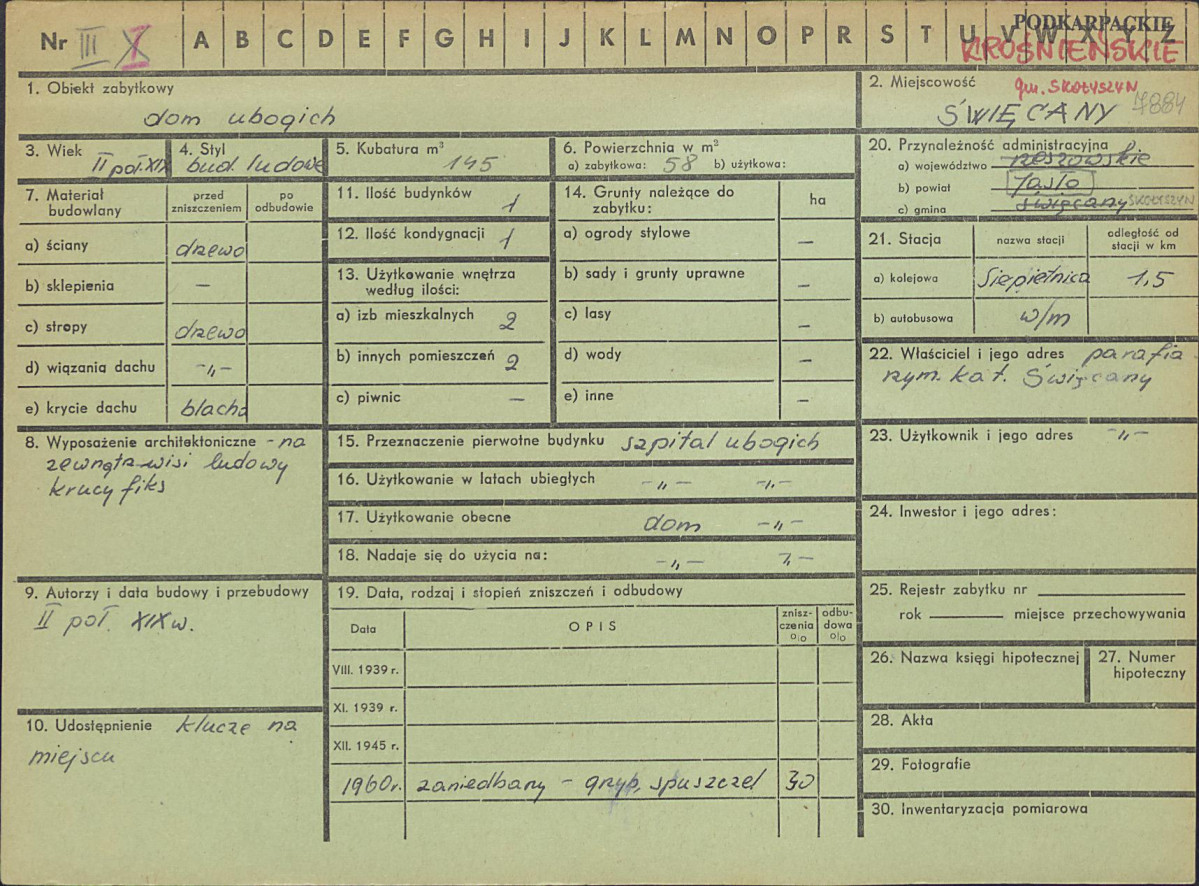 Nr III X I A B C D E F G H I J K L M N O P R S T U V W X Y Z
PODKARPACKIE
KROŚNIEŃSKIE
1. Obiekt zabytkowy
dom ubogich
2. Miejscowość gm. SKOŁYSZYN
ŚWIĘCANY 7884
3. Wiek
II poł. XIX
4. Styl
bud. ludowe
5. Kubatura m³
145
6. Powierzchnia w m²
a) zabytkowa: 58 b) użytkowa:
7. Materiał budowlany
przed zniszczeniem
po odbudowie
a) ściany drzewo
b) sklepienia —
c) stropy drzewo
d) wiązania dachu -„-
e) krycie dachu blacha
8. Wyposażenie architektoniczne - na
zewnątrz wisi ludowy
krucyfiks
9. Autorzy i data budowy i przebudowy
II poł. XIX w.
10. Udostępnienie klucze na
miejscu
11. Ilość budynków 1
12. Ilość kondygnacji 1
13. Użytkowanie wnętrza
według ilości:
a) izb mieszkalnych 2
b) innych pomieszczeń 2
c) piwnic —
14. Grunty należące do
zabytku:
ha
a) ogrody stylowe —
b) sady i grunty uprawne —
c) lasy —
d) wody —
e) inne —
15. Przeznaczenie pierwotne budynku szpital ubogich
16. Użytkowanie w latach ubiegłych -„- -„-
17. Użytkowanie obecne dom -„-
18. Nadaje się do użycia na: -„- -„-
19. Data, rodzaj i stopień zniszczeń i odbudowy
Data
OPIS
znisz-
czenia
o|o
odbu-
dowa
o|o
VIII. 1939 r.
XI. 1939 r.
XII. 1945 r.
1960r. zaniedbany - grzyb, spuszczel 30
20. Przynależność administracyjna
a) województwo rzeszowskie
b) powiat Jasło
c) gmina Święcany SKOŁYSZYN
21. Stacja
nazwa stacji
odległość od
stacji w km
a) kolejowa Siepietnica 1,5
b) autobusowa w/m
22. Właściciel i jego adres parafia
rzym. kat. Święcany
23. Użytkownik i jego adres -„-
24. Inwestor i jego adres:
25. Rejestr zabytku nr
rok miejsce przechowywania
26. Nazwa księgi hipotecznej
27. Numer
hipoteczny
28. Akta
29. Fotografie
30. Inwentaryzacja pomiarowa